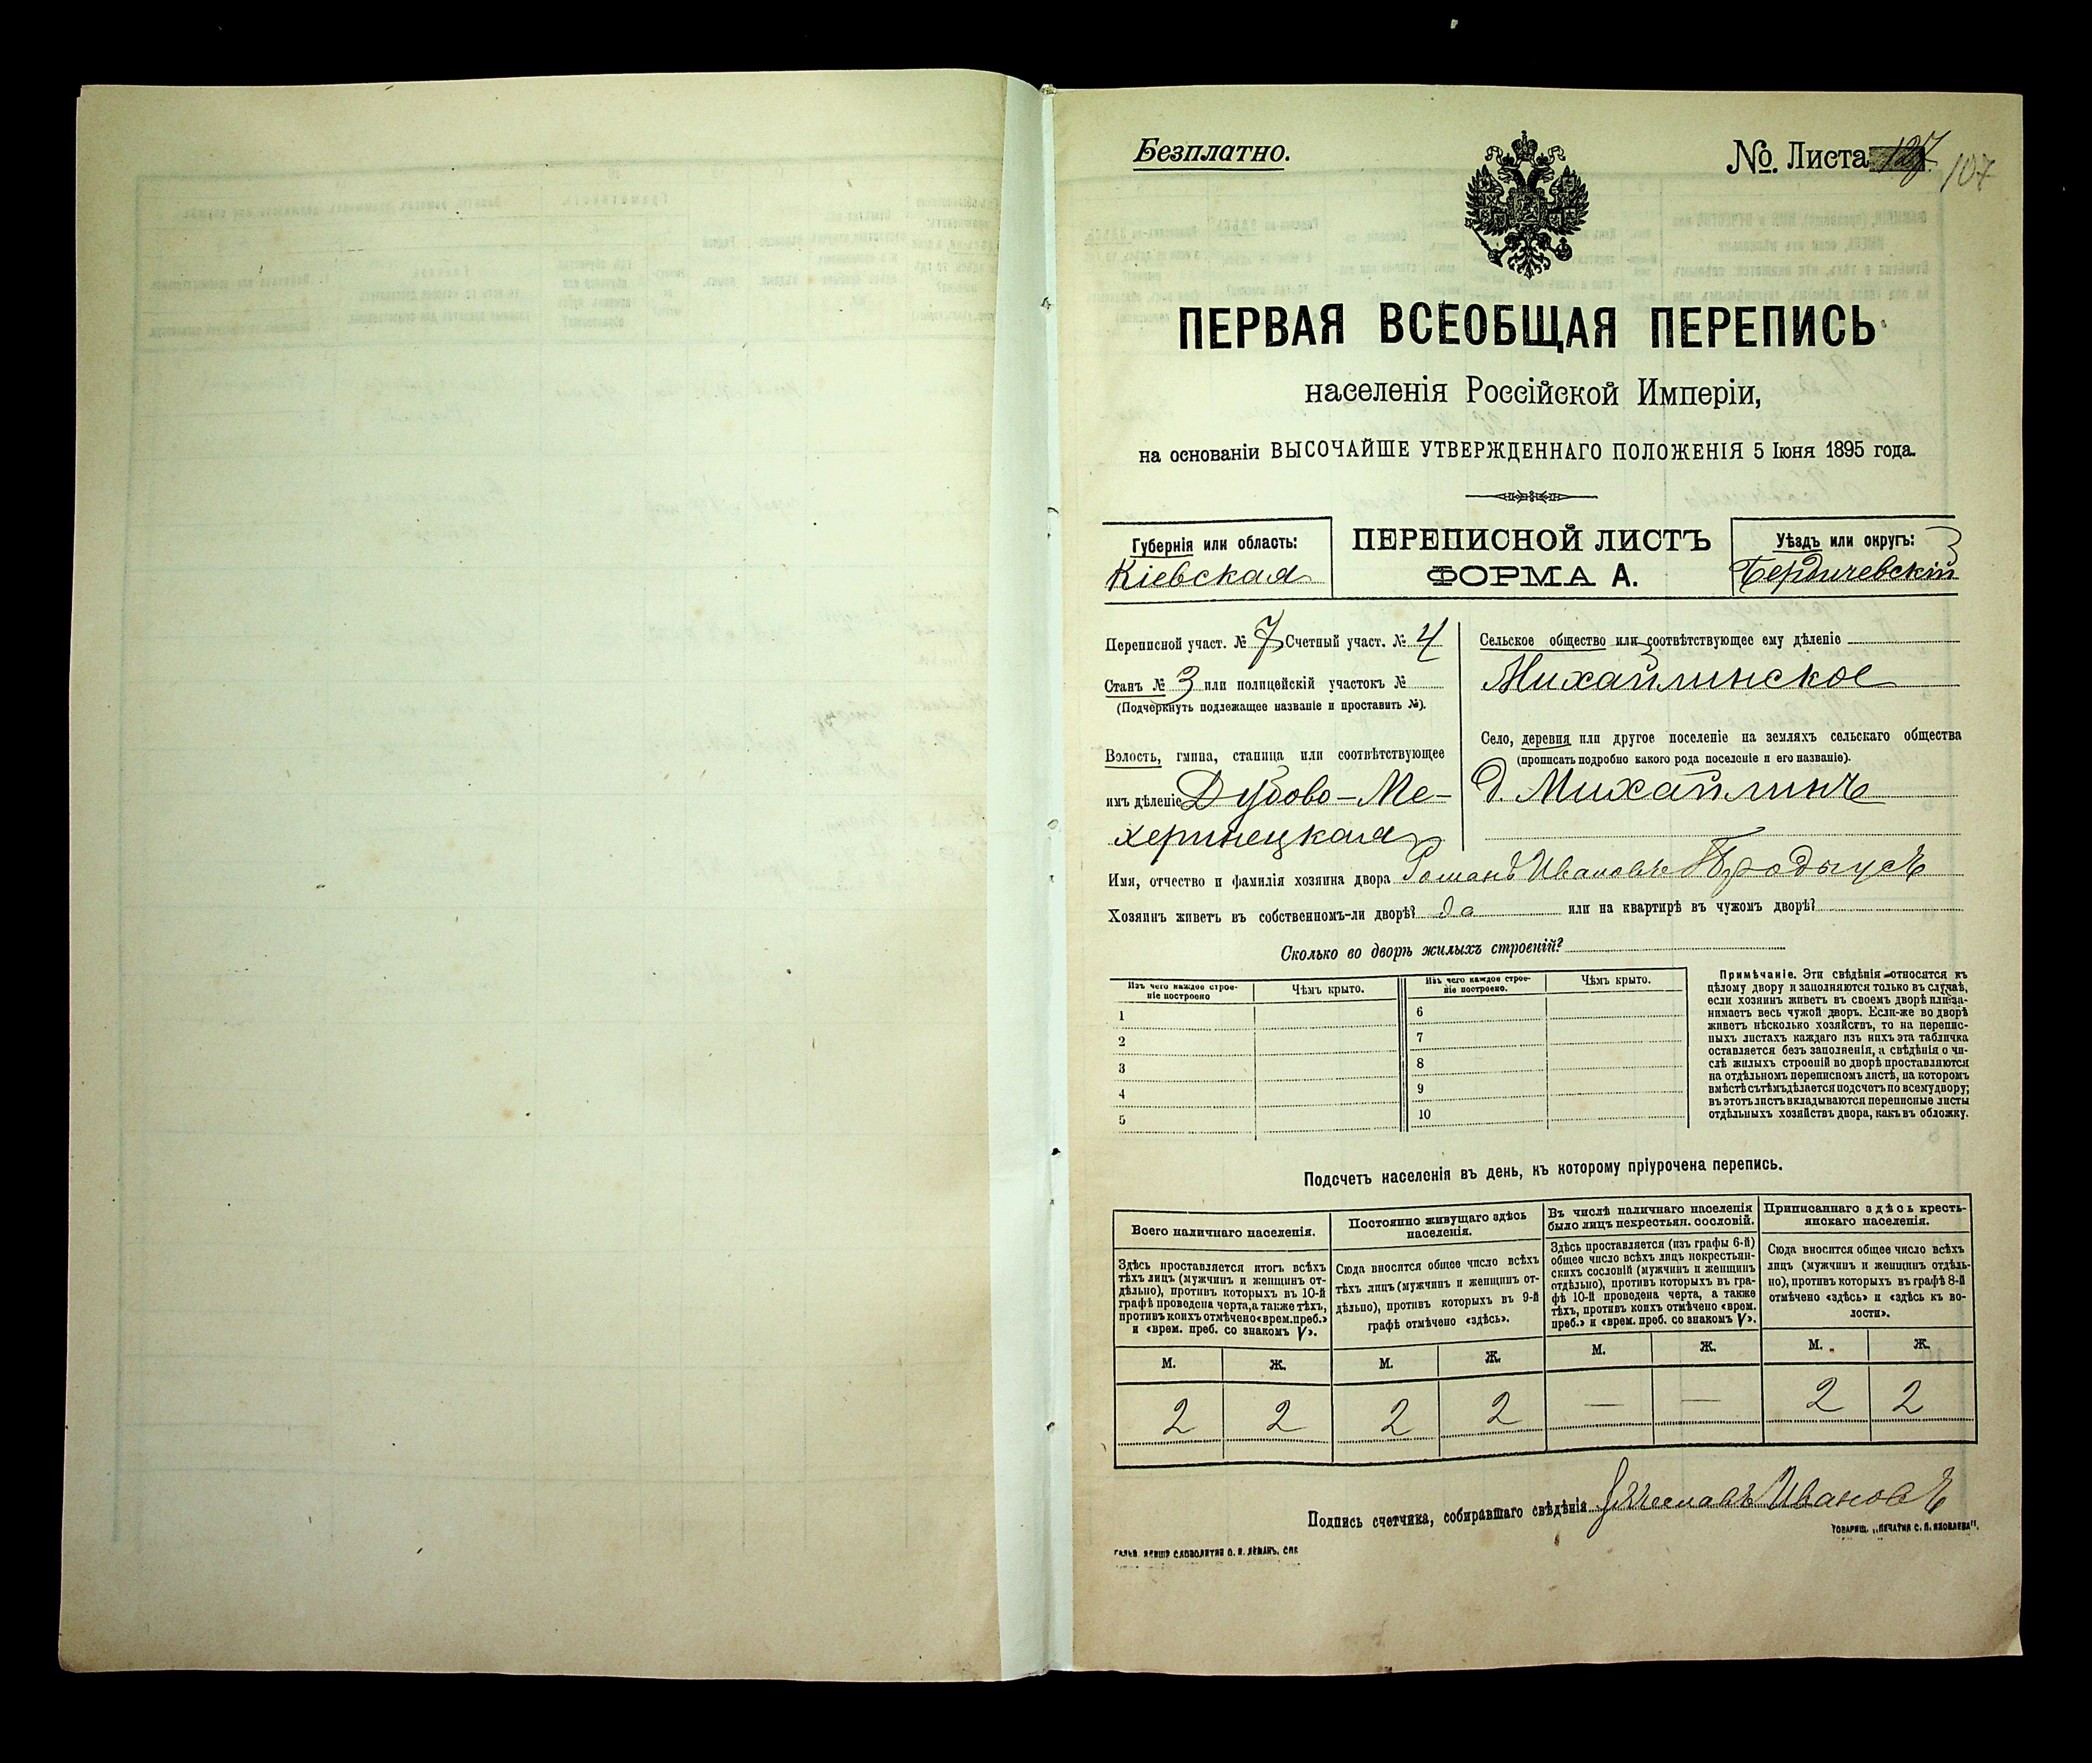 Безплатно.
№. Листа 127 107
ПЕРВАЯ ВСЕОБЩАЯ ПЕРЕПИСЬ
населенія Россійской Имперіи,
на основаніи ВЫСОЧАЙШЕ УТВЕРЖДЕННАГО ПОЛОЖЕНІЯ 5 Іюня 1895 года.
Губернія или область:
Кіевская
ПЕРЕПИСНОЙ ЛИСТЪ
ФОРМА А.
Уѣздъ или округъ:
Бердичевскій
Переписной участ. № 7 Счетный участ. № 4
Станъ № 3 или полицейскій участокъ №
(Подчеркнуть подлежащее названіе и проставить №).
Волость, гмина, станица или соотвѣтствующее
имъ дѣленіе Дубово-Ме-
херинецкая
Сельское общество или соотвѣтствующее ему дѣленіе
Михайлинское
Село, деревня или другое поселеніе на земляхъ сельскаго общества
(прописать подробно какого рода поселеніе и его названіе).
д. Михайлинъ
Имя, отчество и фамилія хозяина двора Романъ Ивановъ
Хозяинъ живетъ въ собственномъ-ли дворѣ? да или на квартирѣ въ чужомъ дворѣ?
Сколько во дворѣ жилыхъ строеній?
Изъ чего каждое строе-
ніе построено
Чѣмъ крыто.
Изъ чего каждое строе-
ніе построено.
Чѣмъ крыто.
1
6
2
7
3
8
4
9
5
10
Примѣчаніе. Эти свѣдѣнія относятся къ
цѣлому двору и заполняются только въ случаѣ,
если хозяинъ живетъ въ своемъ дворѣ или за-
нимаетъ весь чужой дворъ. Если-же во дворѣ
живетъ нѣсколько хозяйствъ, то на перепис-
ныхъ листахъ каждаго изъ нихъ эта табличка
оставляется безъ заполненія, а свѣдѣнія о чи-
слѣ жилыхъ строеній во дворѣ проставляются
на отдѣльномъ переписномъ листѣ, на которомъ
вмѣстѣ съ тѣмъ дѣлается подсчетъ по всему двору;
въ этотъ листъ вкладываются переписные листы
отдѣльныхъ хозяйствъ двора, какъ въ обложку.
Подсчетъ населенія въ день, къ которому пріурочена перепись.
Всего наличнаго населенія.
Здѣсь проставляется итогъ всѣхъ
тѣхъ лицъ (мужчинъ и женщинъ от-
дѣльно), противъ которыхъ въ 10-й
графѣ проведена черта, а также тѣхъ,
противъ коихъ отмѣчено «врем. преб.»
и «врем. преб. со знакомъ V».
Постоянно живущаго здѣсь
населенія.
Сюда вносится общее число всѣхъ
тѣхъ лицъ (мужчинъ и женщинъ от-
дѣльно), противъ которыхъ въ 9-й
графѣ отмѣчено «здѣсь».
Въ числѣ наличнаго населенія
было лицъ некрестьян. сословій.
Здѣсь проставляется (изъ графы 6-й)
общее число всѣхъ лицъ некрестьян-
скихъ сословій (мужчинъ и женщинъ
отдѣльно), противъ которыхъ въ гра-
фѣ 10-й проведена черта, а также
тѣхъ, противъ коихъ отмѣчено «врем.
преб.» и «врем. преб. со знакомъ V».
Приписаннаго здѣсь кресть-
янскаго населенія.
Сюда вносится общее число всѣхъ
лицъ (мужчинъ и женщинъ отдѣль-
но), противъ которыхъ въ графѣ 8-й
отмѣчено «здѣсь» и «здѣсь къ во-
лости».
М. Ж. М. Ж. М. Ж. М. Ж.
2 2 2 2 — — 2 2
Подпись счетчика, собиравшаго свѣдѣнія Ивановъ
ТОВАРИЩ. „ПЕЧАТНЯ С. П. ЯКОВЛЕВА".
СЛОВОЛИТНИ О. И. ЛЕМАНЪ, СПБ